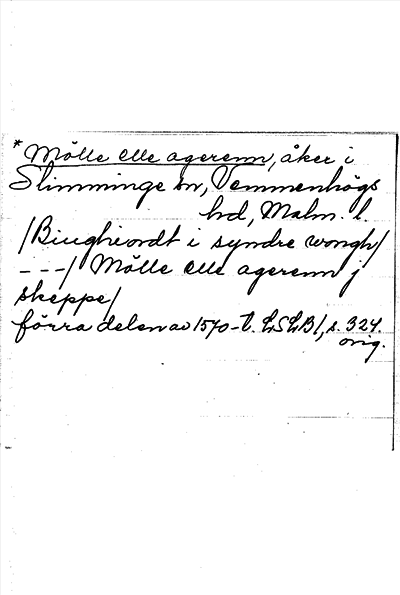 * Mölle elle agerenn, åker i
Slimminge sn, Vemmenhögs
hd, Malm. l.
/Biughiordt i syndre wongh/
---/ Mölle elle agerenn j
skeppe/
förra delen av 1570-t. LSLB1, s. 324.
orig.